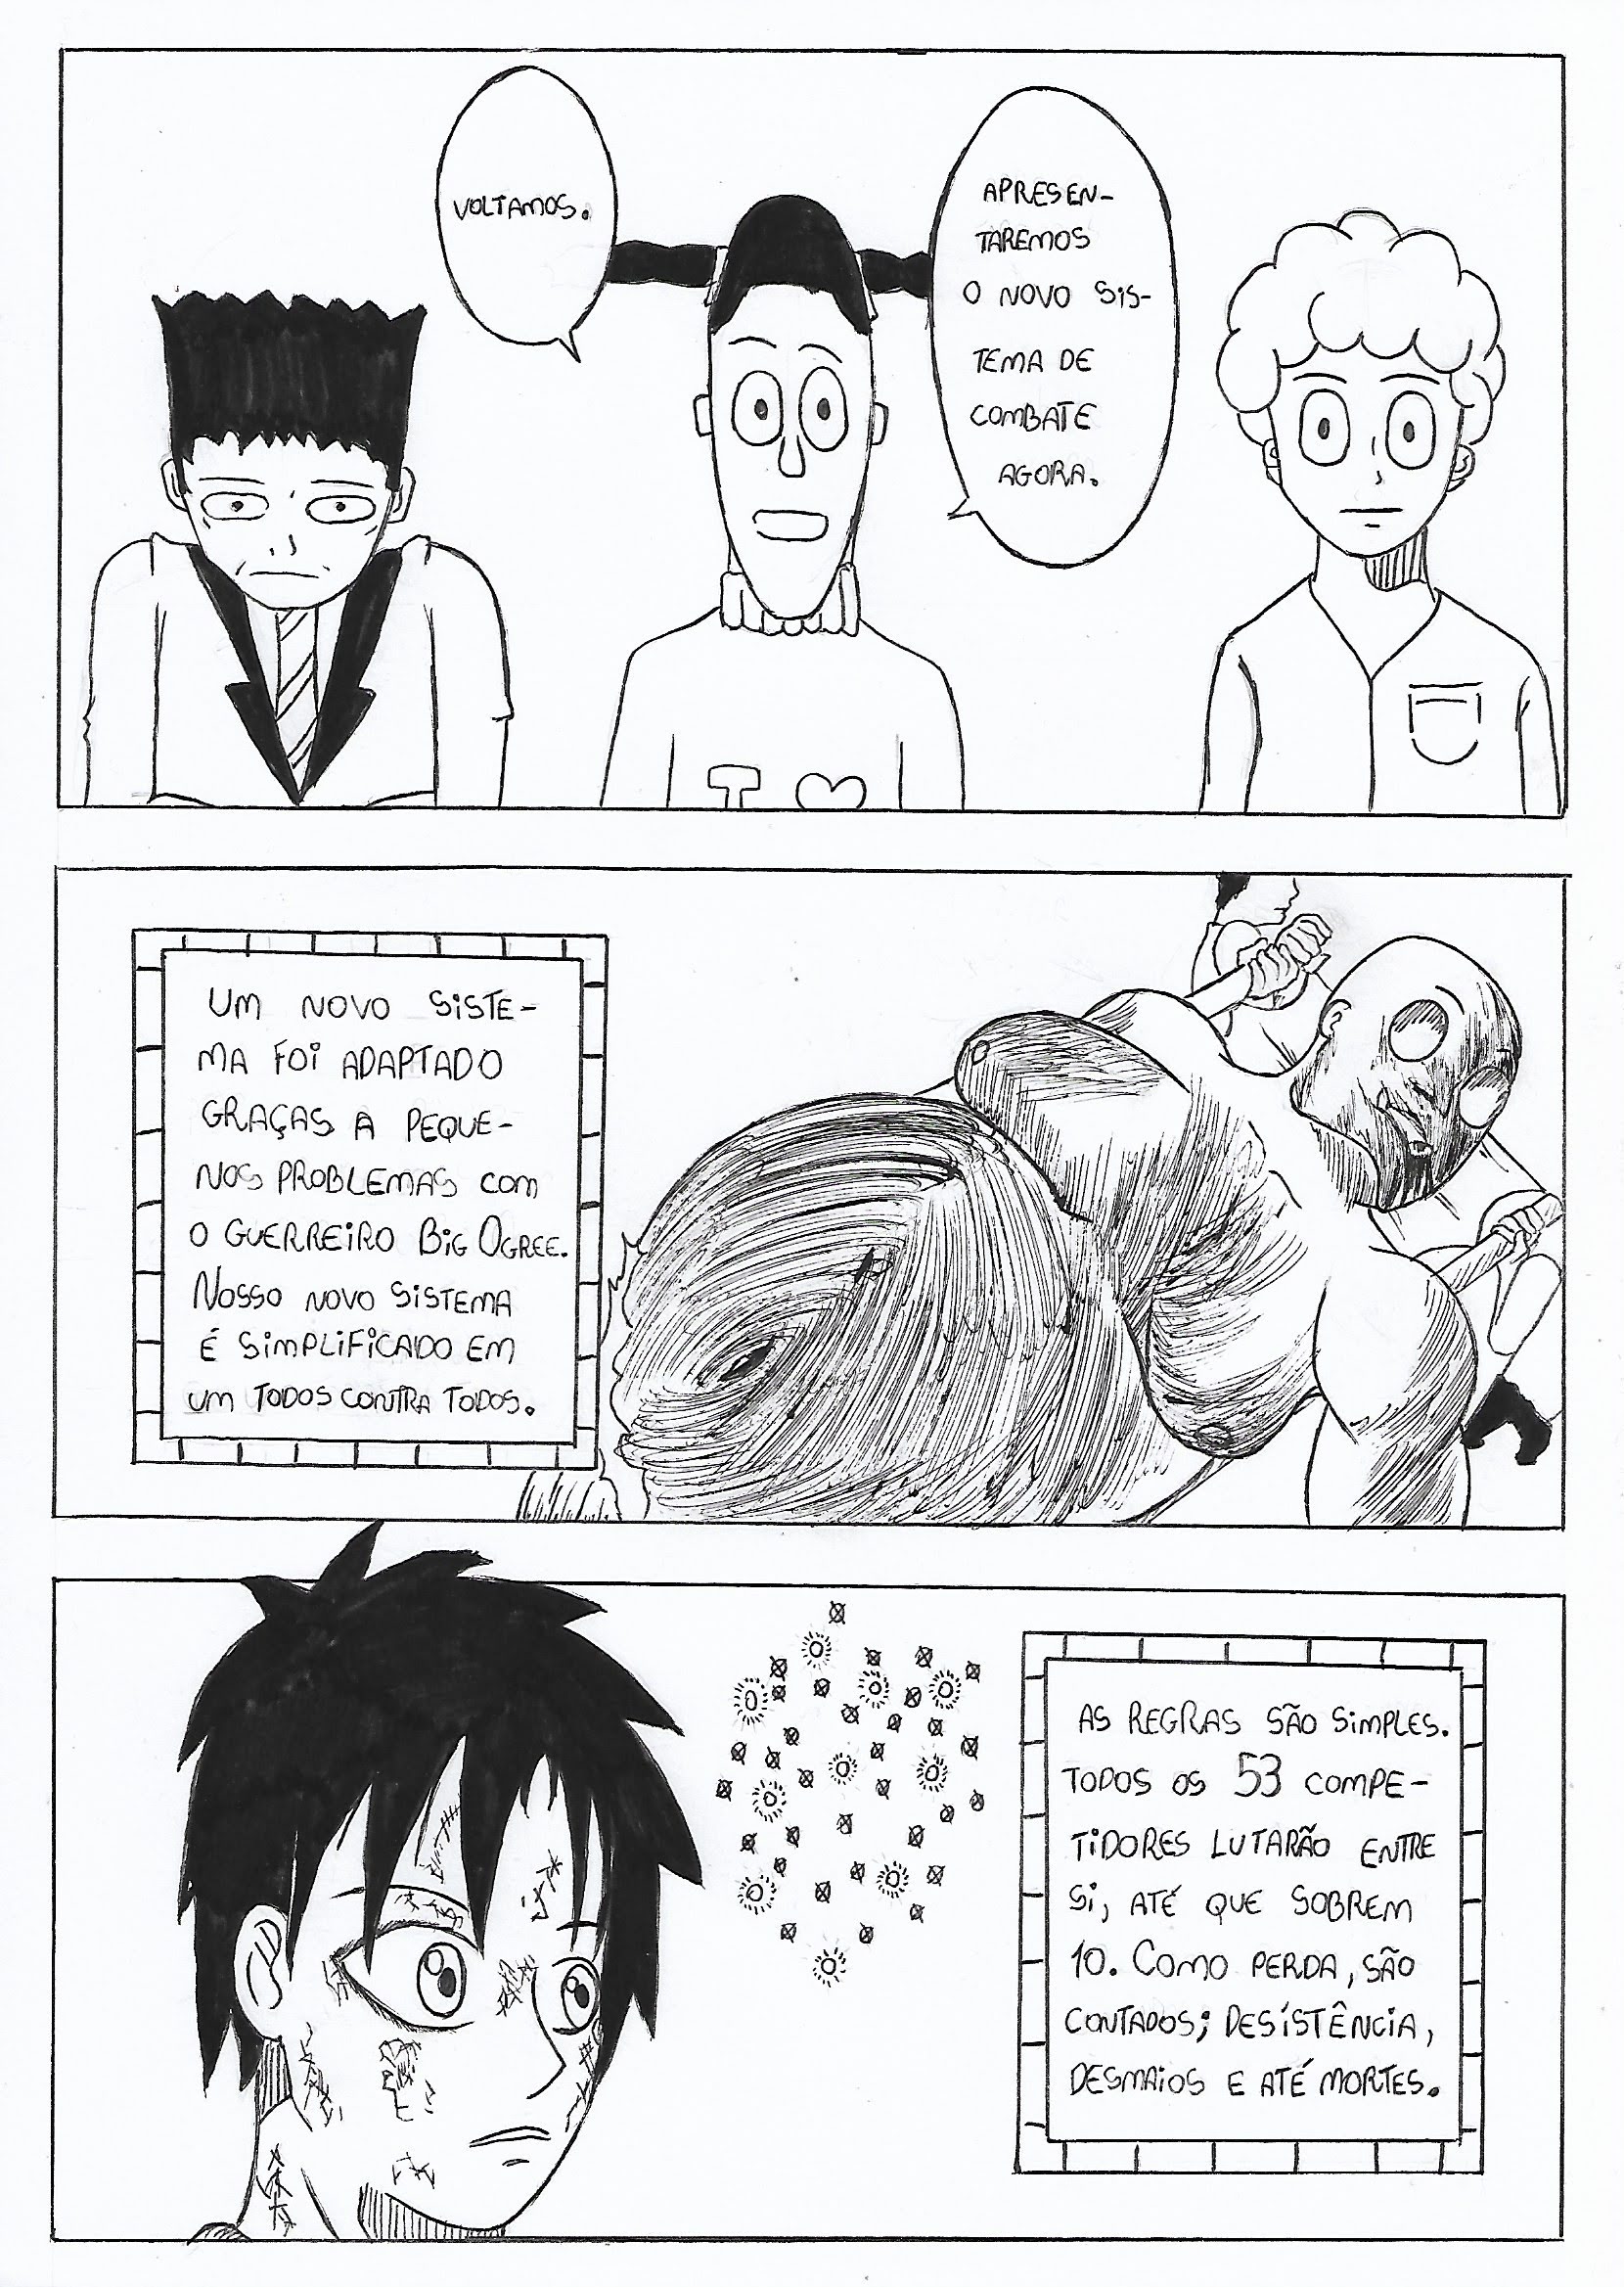 VOLTAMOS.
APRESEN-
TAREMOS
O NOVO SIS-
TEMA DE
COMBATE
AGORA.
I
UM NOVO SISTE-
MA FOI ADAPTADO
GRAÇAS A PEQUE-
NOS PROBLEMAS COM
O GUERREIRO BIG OGREE.
NOSSO NOVO SISTEMA
É SIMPLIFICADO EM
UM TODOS CONTRA TODOS.
AS REGRAS SÃO SIMPLES.
TODOS OS 53 COMPE-
TIDORES LUTARÃO ENTRE
SI, ATÉ QUE SOBREM
10. COMO PERDA, SÃO
CONTADOS; DESÍSTÊNCIA,
DESMAIOS E ATÉ MORTES.